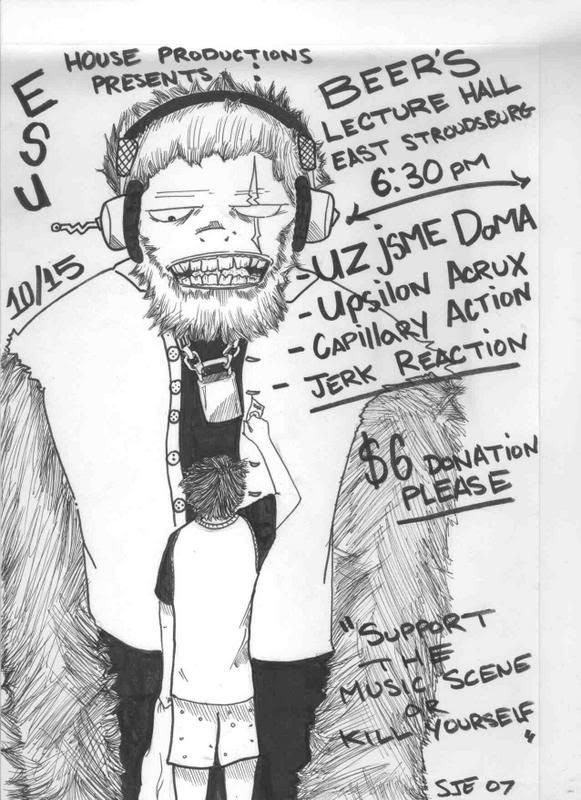 HOUSE PRODUCTIONS
PRESENTS :
ESU
10/15
BEER'S
LECTURE HALL
EAST STROUDSBURG
6:30 PM
- UZ JSME DOMA
- UPSILON ACRUX
- CAPILLARY ACTION
- JERK REACTION
$6 DONATION
PLEASE
"SUPPORT
THE
MUSIC SCENE
OR
KILL YOURSELF
"
SJE 07